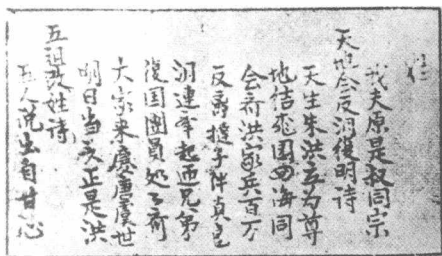 我夫原是叔同宗
天地会反汨復明诗
天生朱洪立为尊
地佶飛团四海同
会齐洪家兵百万
反离撻子伴真
汨連举起迎兄弟
復国團員处处齐
大家来慶唐虞世
明日当头正是洪
五祖改姓诗
五人说出自甘心